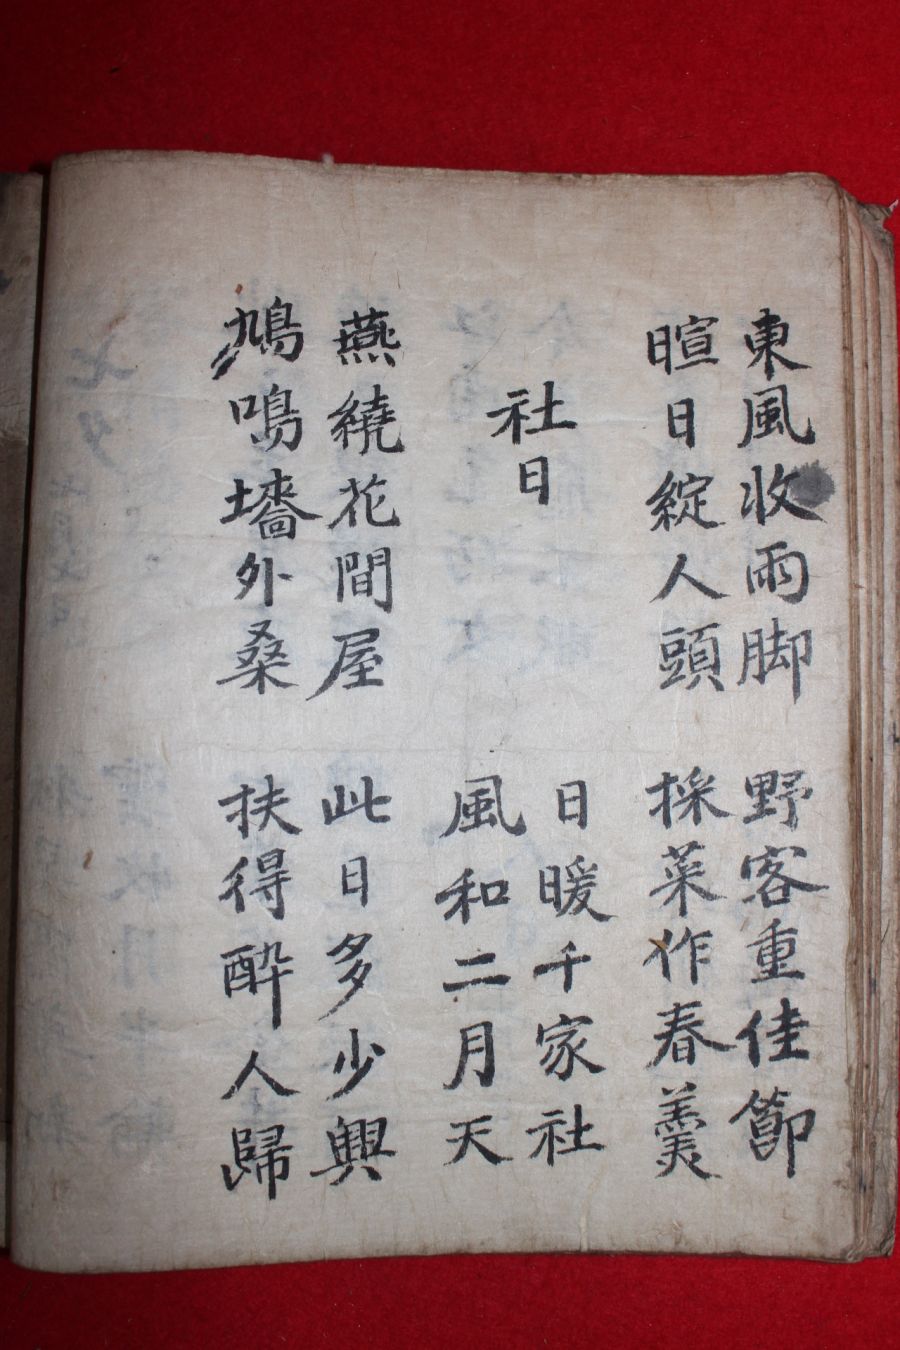 東風收雨脚 野客重佳節
暄日綻人頭 採菜作春羹
社日 日暖千家社
風和二月天
燕繞花間屋 此日多少興
鳩鳴墻外桑 扶得醉人歸